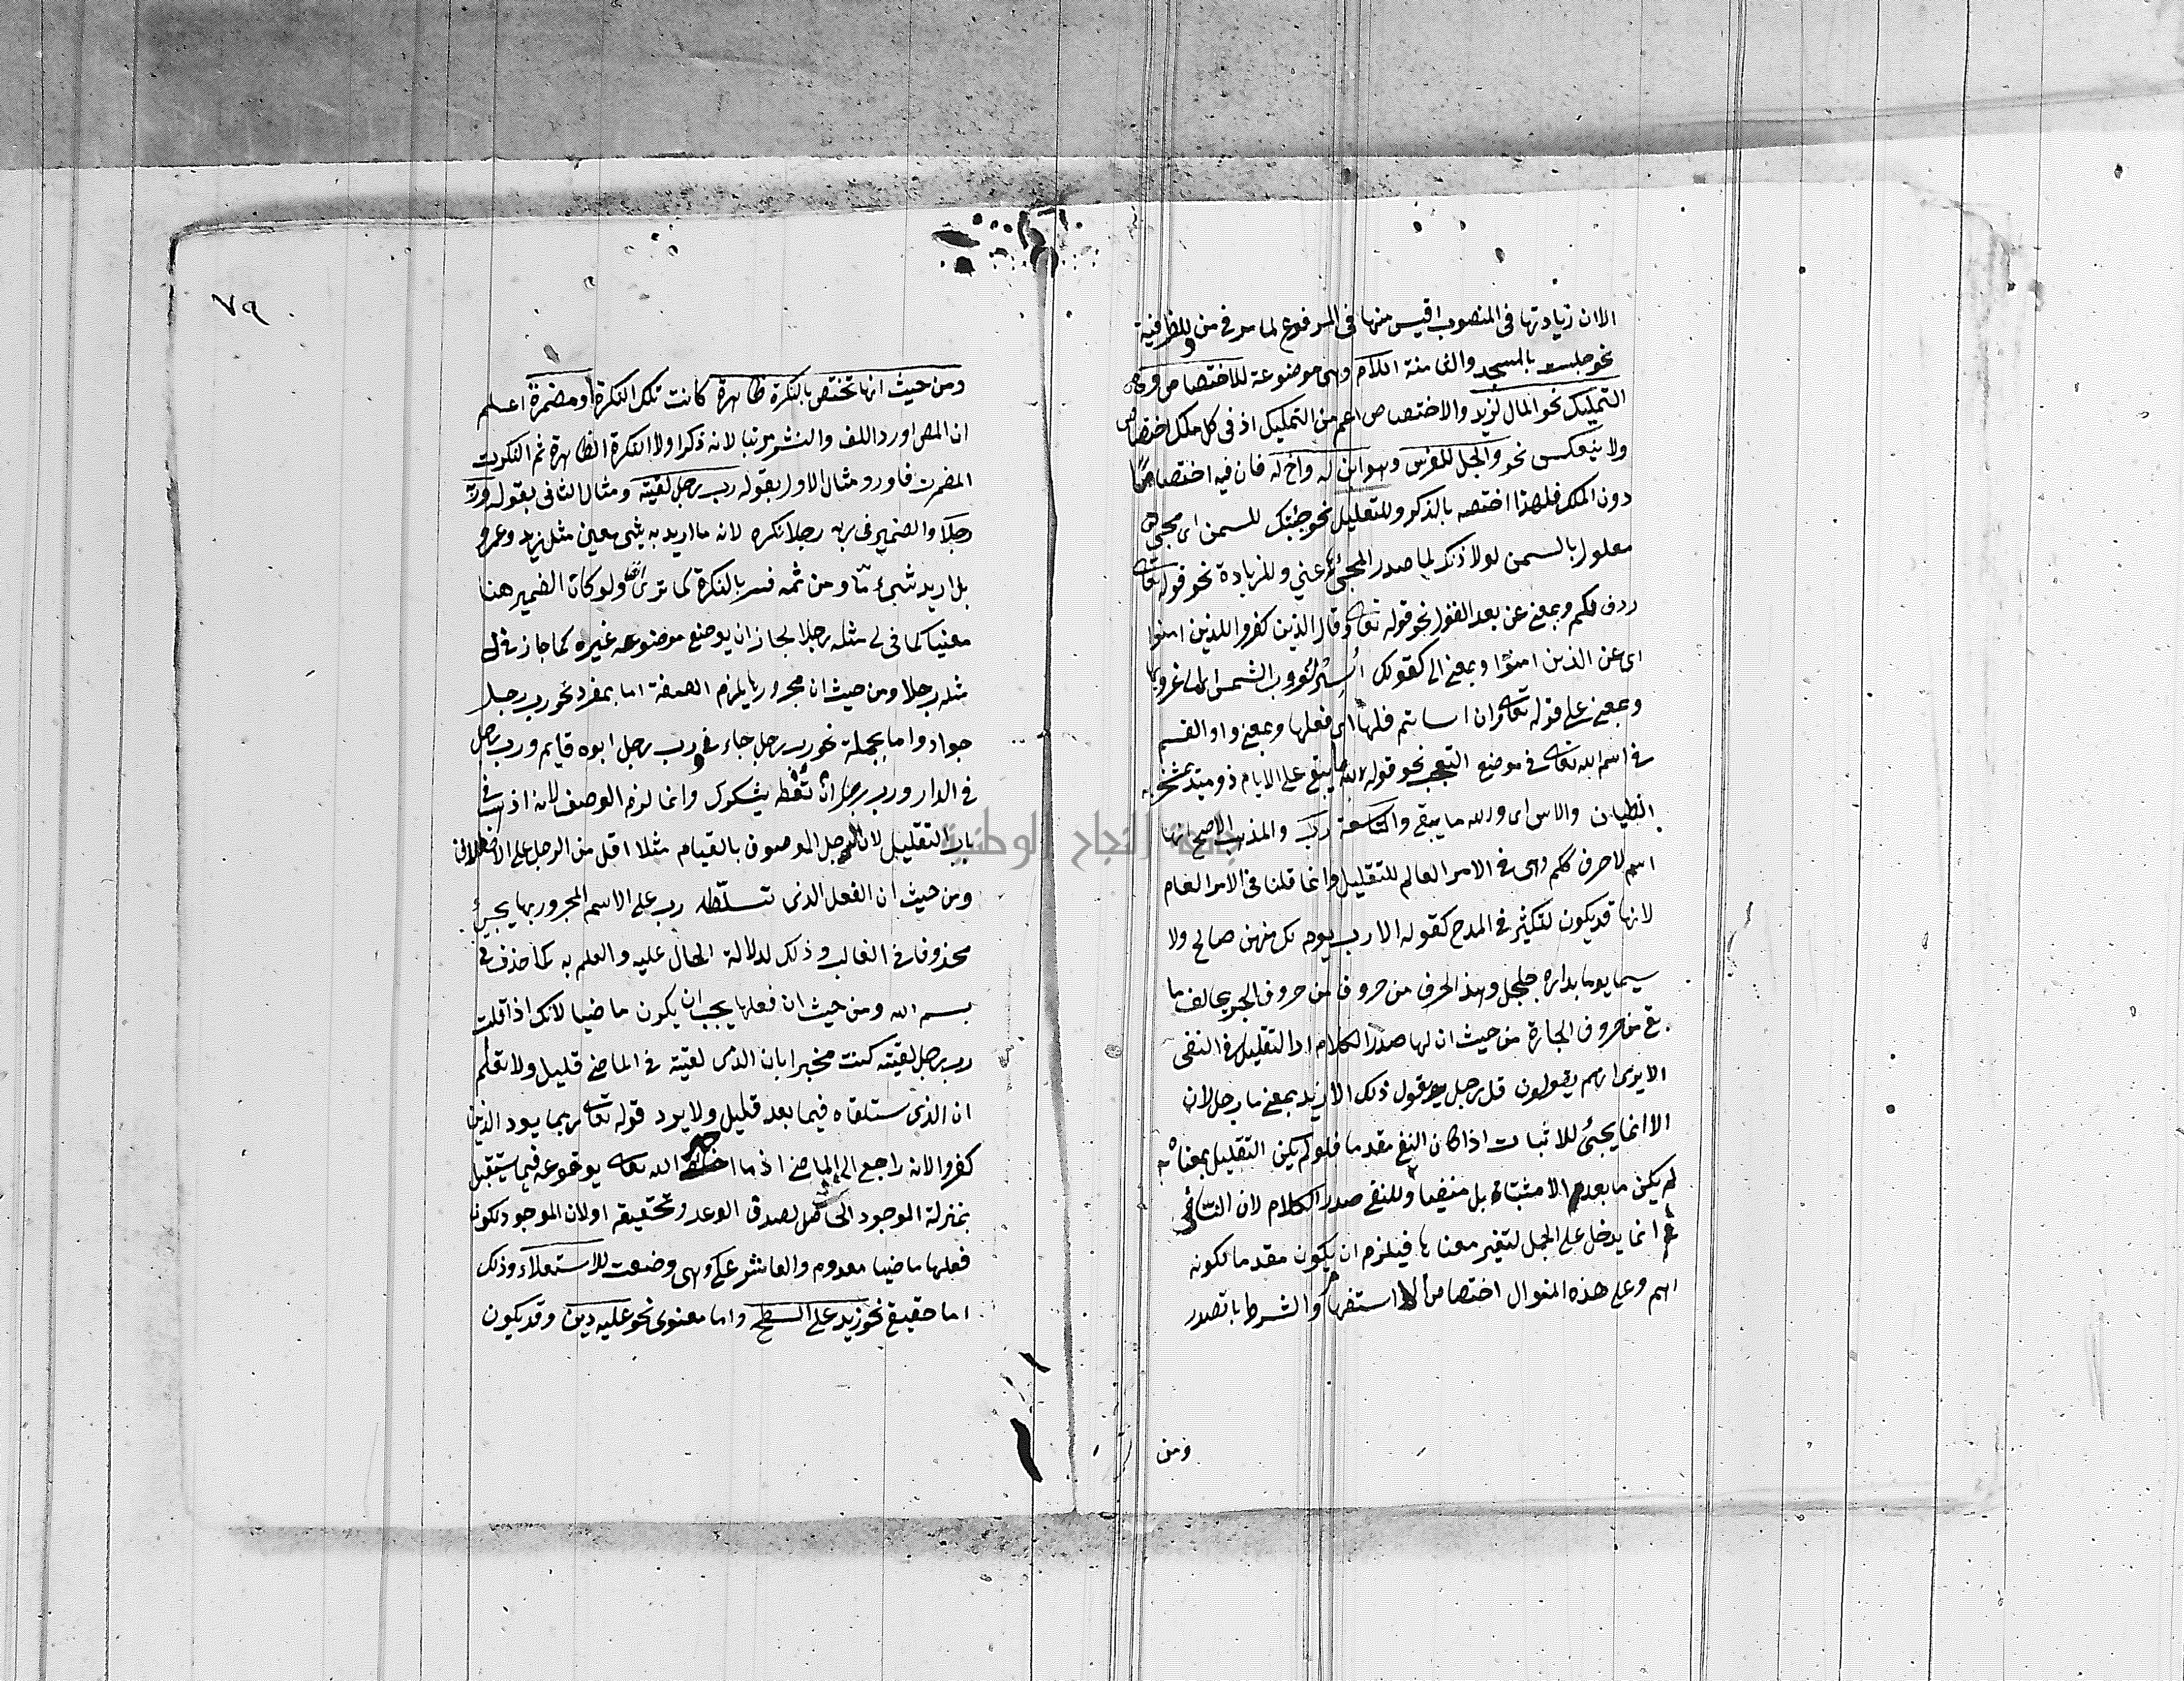 الا ان زيادتها فى المنصوب اقيس منها فى المرفوع لما مر فى من وللظرفية
نحو جلست بالمسجد والثامنة اللام وهى موضوعة للاختصاص
التمليك نحو المال لزيد والاختصاص اعم من التمليك اذ فى كل ملك اختصاص
ولا ينعكس نحو والجل للفرس وهو ابن له واخ له فان فيه اختصاصا
دون الملك فلهذا اختصه بالذكر وللتعليل نحو جئتك للسمن اى مجئى
معلول بالسمن لولا ذلك لما صدر المجئ عنى وللزيادة نحو قوله تعالى
ردف لكم وبمعنى عن بعد القول نحو قوله تعالى وقال الذين كفروا للذين امنوا
اى عن الذين امنوا وبمعنى الى كقولك لغروب الشمس اى الى غروبها
وبمعنى على قوله تعالى وان اساتم فلها اى فعليها وبمعنى واو القسم
فى اسم الله تعالى فى موضع التعجب نحو قوله لله يبقى على الايام ذو حيد بمشمخر به
الظيان والاس اى والله ما يبقى والتاسعة رب والمذهب الاصح انها
اسم لا حرف كلم وهى فى الامر العالم للتقليل وانما قلنا فى الامر العام
لانها قد يكون لتكثير فى المدح كقوله الا رب يوم لك منهن صالح ولا
سيما يوما بدارة جلجل وهذ الحرف من حروف من حروف الجر يخالف ما
بقى من حروف الجارة من حيث ان لها صدر الكلام اذ التقليل فى النفى
الا يرى انهم يقولون قل رجل يقول ذلك الا زيد بمعنى ما رجل لان
الا انما يجئ للاثبات اذا كان النفى مقدما فلو لم يكن التقليل بمعناه
لم يكن ما بعد الا مثبتا بل منفيا وللنفى صدر الكلام لان النافى
انما يدخل على الجمل لتغير معناها فيلزم ان يكون مقدما لكونه
اهم وعلى هذه المنوال اختصاص الاستفهام والشرط باتصدر
ومن
٧٩
ومن حيث انها تختص بالنكرة ظاهرة كانت تلك النكرة او مضمرة اعلم
ان المص اورد اللف والنشر مرتبا لانه ذكر اولا النكرة الظاهرة ثم النكرت
المضمرت فاورد مثال الاول بقوله رب رجل لقيته ومثال الثانى بقوله وربه
رجلا والضمير فى ربه رجلا نكره لانه ما اريد به شئ معين مثل زيد وعمرو
بل اريد شئ ما ومن ثمه فسر بالنكرة كما ترى ولو كان الضمير هنا
معنيا كما فى لى مثله رجلا لجاز ان يوضع موضعه غيره كما جاز فى لى
مثله رجلا ومن حيث ان مجرورها يلزم الصفة اما بمفرد نحو رب رجل
جواد واما بجملة نحو رب رجل جاء فى ورب رجل ابوه قايم ورب رجل
فى الدار ورب رجل ان تعطه يشكرك وانما لزم الوصف لانه اذهب فى
باب التقليل لان الرجل الموصوف بالقيام مثلا اقل من الرجل على الاطلاق
ومن حيث ان الفعل الذى تسلطه رب على الاسم المجرور بها يجئ
محذوفا فى الغالب وذلك لدلالة الحال عليه والعلم به كما حذف فى
بسم الله ومن حيث ان فعلها يجب ان يكون ماضيا لانك اذا قلت
رب رجل لقيته كنت مخبرا بان الذى لقيته فى الماضى قليل ولا تعلم
ان الذى ستلقاه فيما بعد قليل ولا يرد قوله تعالى ربما يود الذين
كفروا لانه راجع الى الماضى اذ ما اخبر الله تعالى بوقوعه فيما يستقبل
بمنزلة الموجود الحاصل لصدق الوعد وتحقيقه اولان الموجود لكون
فعلها ماضيا معدوم والعاشر على وهى وضعت للاستعلاء وذلك
اما حقيقى نحو زيد على السطح واما معنوى نحو عليه دين وقد يكون
جامعة النجاح الوطنية